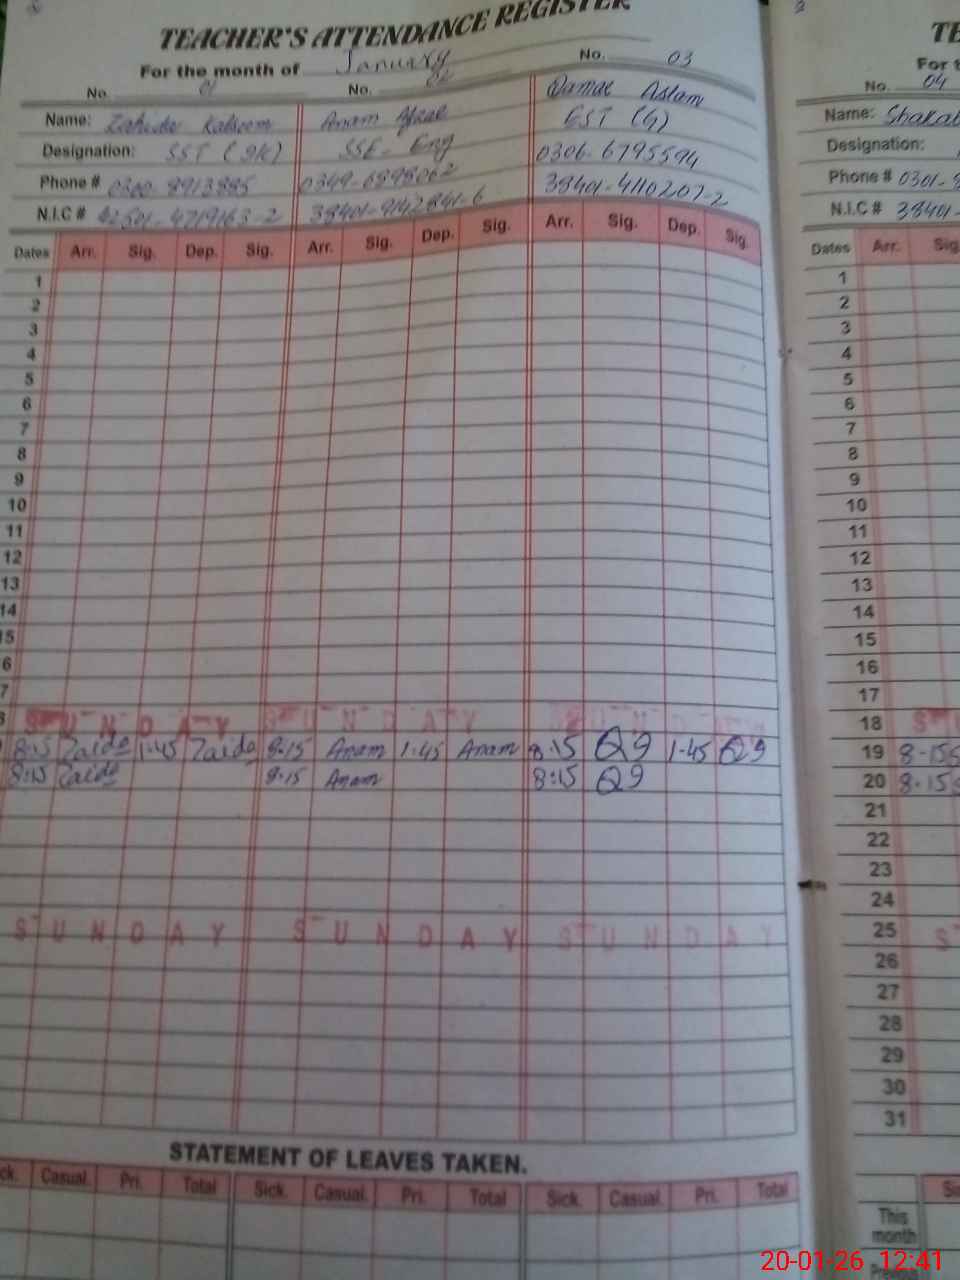 TEACHER'S ATTENDANCE REGISTER
For the month of January
No. 01 No. 02 No. 03
Name: Zahida Kalsoom Anam Afzal Qamar Aslam
Designation: SST (Sci) SSE- Eng EST (G)
Phone # 0300-8913885 0349-6898062 0306-6795594
N.I.C # 42501-4719163-2 38401-9142841-6 38401-4110207-2
Dates Arr. Sig. Dep. Sig. Arr. Sig. Dep. Sig. Arr. Sig. Dep. Sig.
1
2
3
4
5
6
7
8
9
10
11
12
13
14
15
6
7
8 SUNDAY SUNDAY SUNDAY
8:15 Zaida 1-45 Zaida 8-15 Anam 1-45 Anam 8:15 1-45
8:15 Zaida 8-15 Anam 8:15
SUNDAY SUNDAY SUNDAY
STATEMENT OF LEAVES TAKEN.
ck. Casual. Pri. Total Sick. Casual. Pri. Total Sick. Casual. Pri. Total
2
TE
For t
No. 04
Name: Shakal
Designation:
Phone # 0301-
N.I.C # 38401-
Dates Arr. Sig
1
2
3
4
5
6
7
8
9
10
11
12
13
14
15
16
17
18 S
19 8-15
20 8-15
21
22
23
24
25 S
26
27
28
29
30
31
Si
This
month
20-01-26 12:41